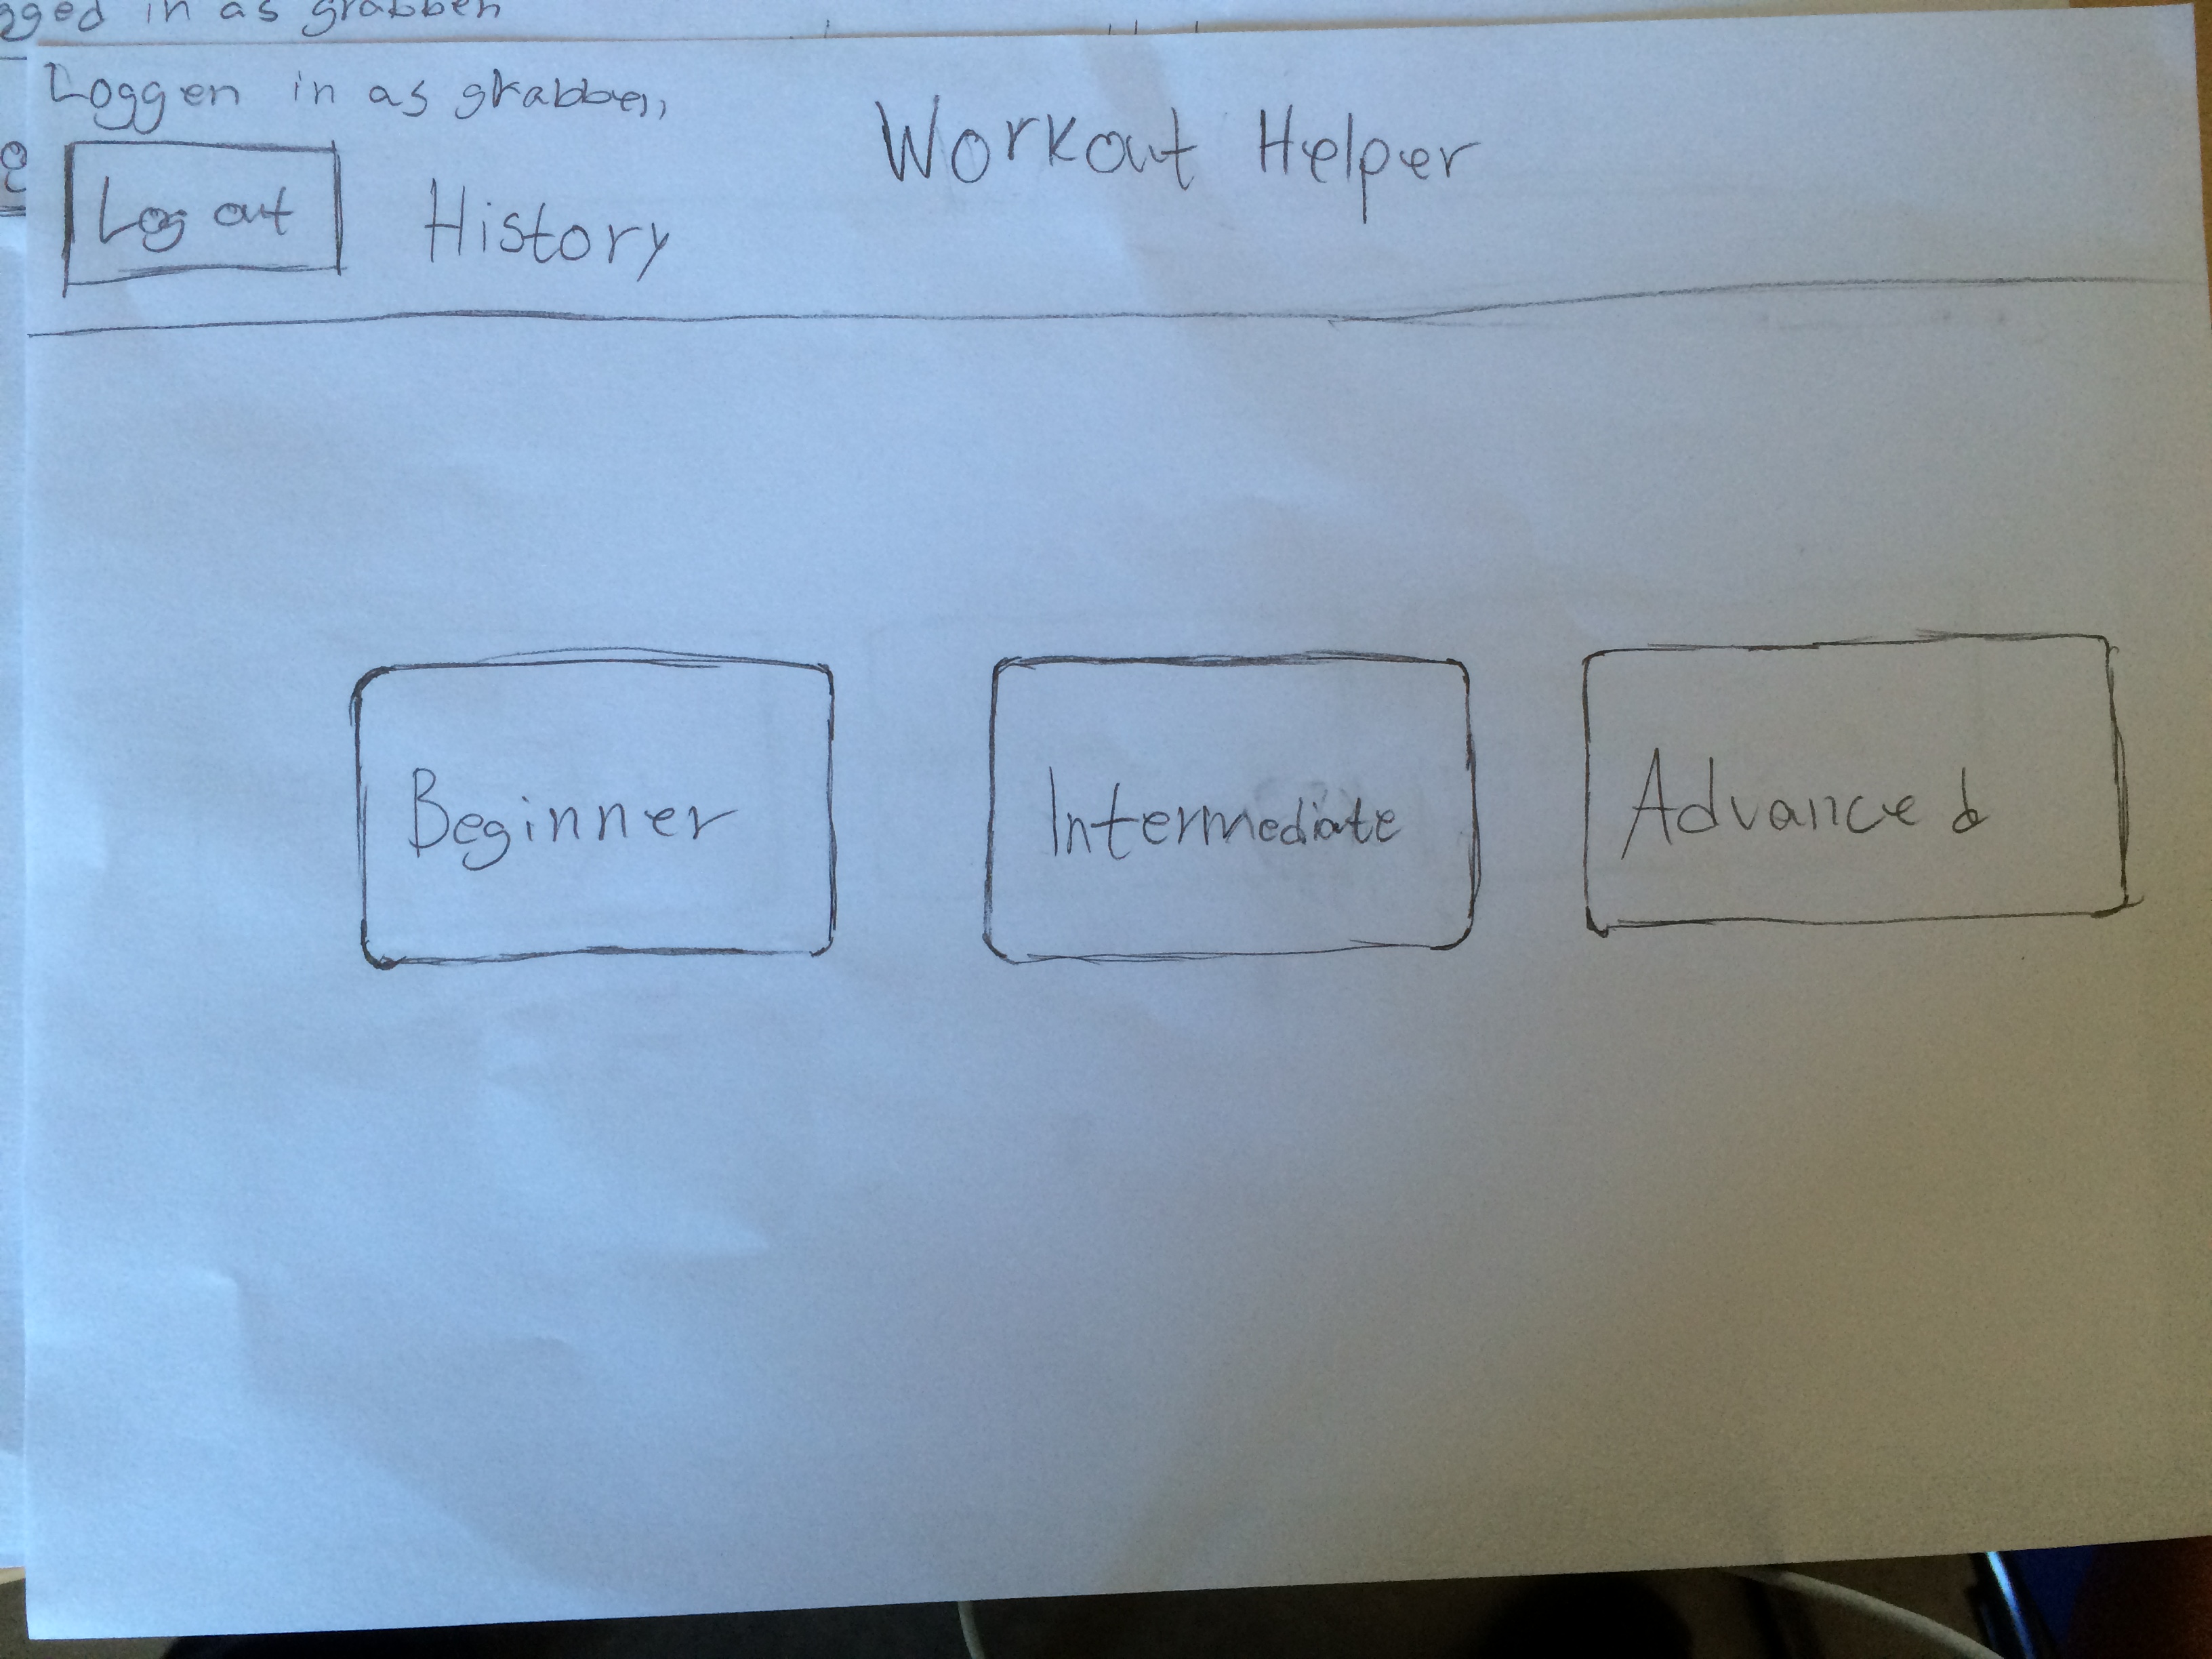 gged in as grabben
Loggen in as grabben
Workout Helper
Log out
History
Beginner
Intermediate
Advanced